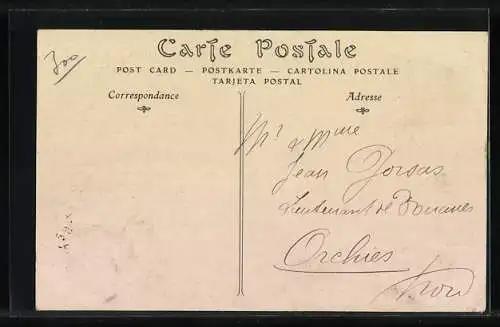 300
Carte Postale
POST CARD — POSTKARTE — CARTOLINA POSTALE
TARJETA POSTAL
Correspondance
Adresse
Mr & Mme
Jean
Lieutenant de Douanes
Orchies
Nord